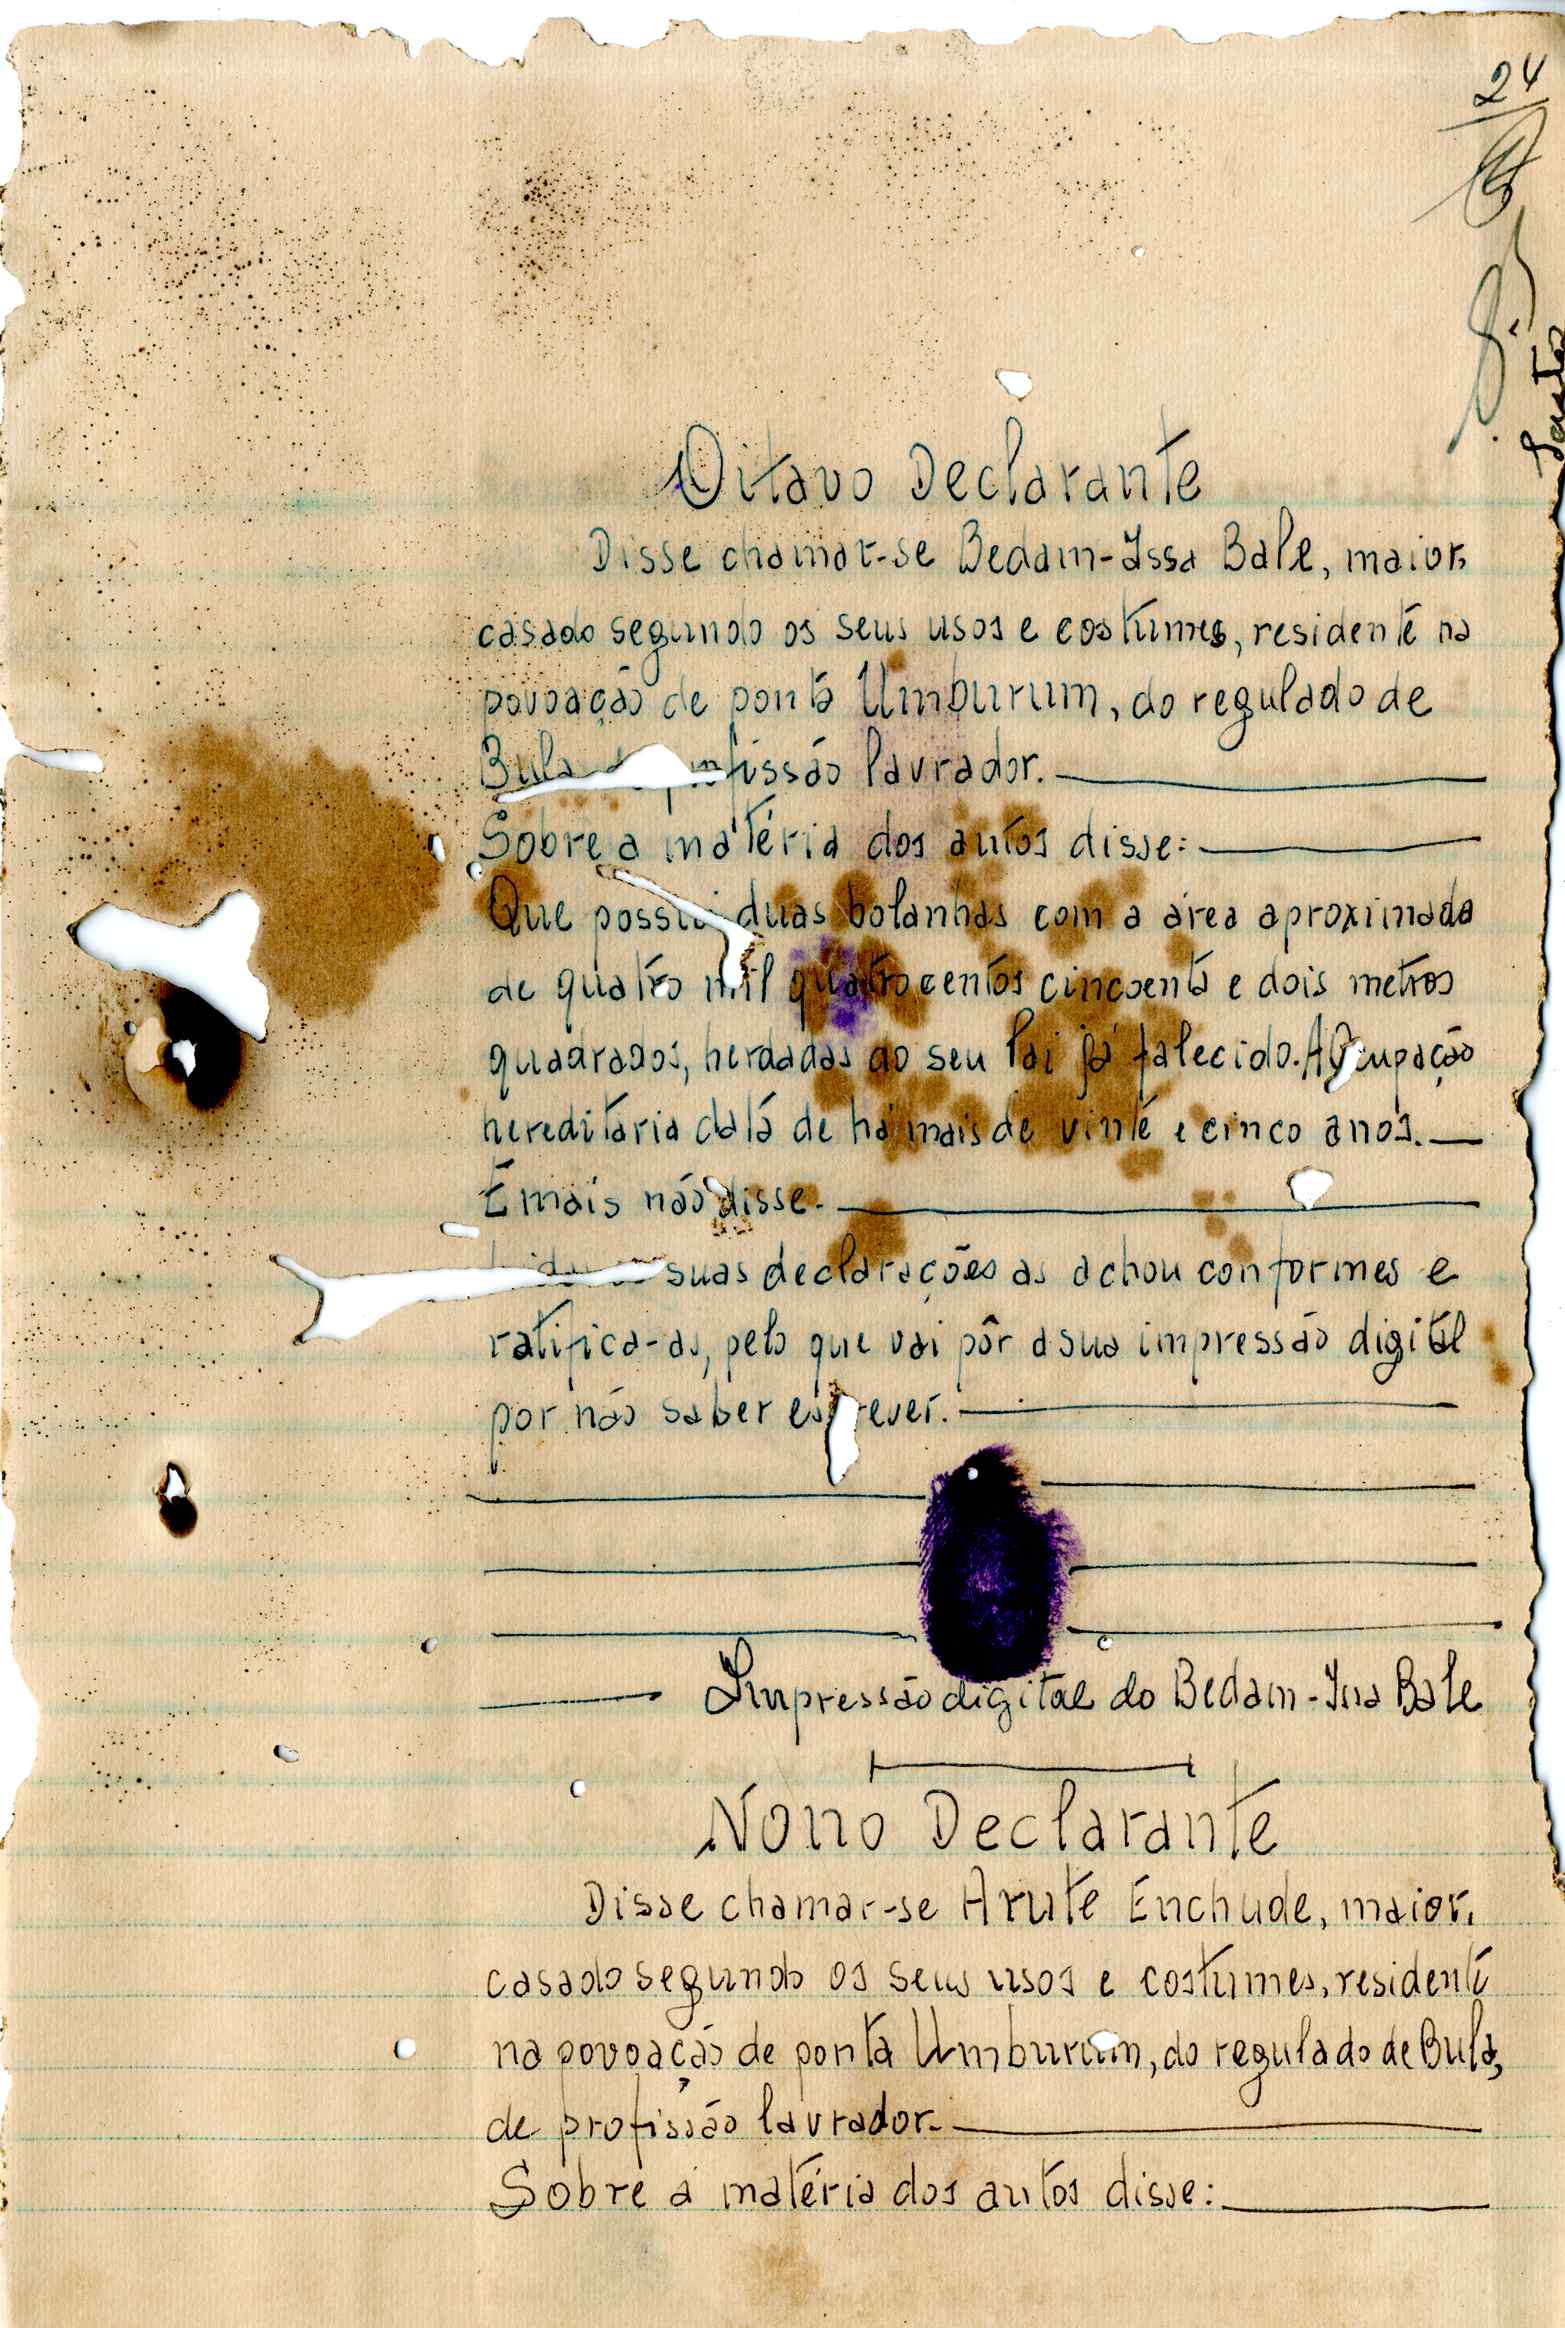 24
Oitavo Declarante
Disse chamar-se Bedam-Issa Bale, maior,
casado segundo os seus usos e costumes, residente na
povoação de ponta Umburum, do regulado de
Bula profissão lavrador.
Sobre a matéria dos autos disse:
Que possui duas bolanhas com a área aproximada
de quatro mil quatrocentos cincoenta e dois metros
quadrados, herdadas do seu Pai já falecido. A Ocupação
hereditária data de há mais de vinte e cinco anos.
E mais não disse.
suas declarações as achou conformes e
ratifica-as, pelo que vai pôr a sua impressão digital
por não saber escrever.
Impressão digital do Bedam-Issa Bale
Nono Declarante
Disse chamar-se Arute Enchude, maior,
casado segundo os seus usos e costumes, residente
na povoação de ponta Umburum, do regulado de Bula,
de profissão lavrador.
Sobre a matéria dos autos disse: